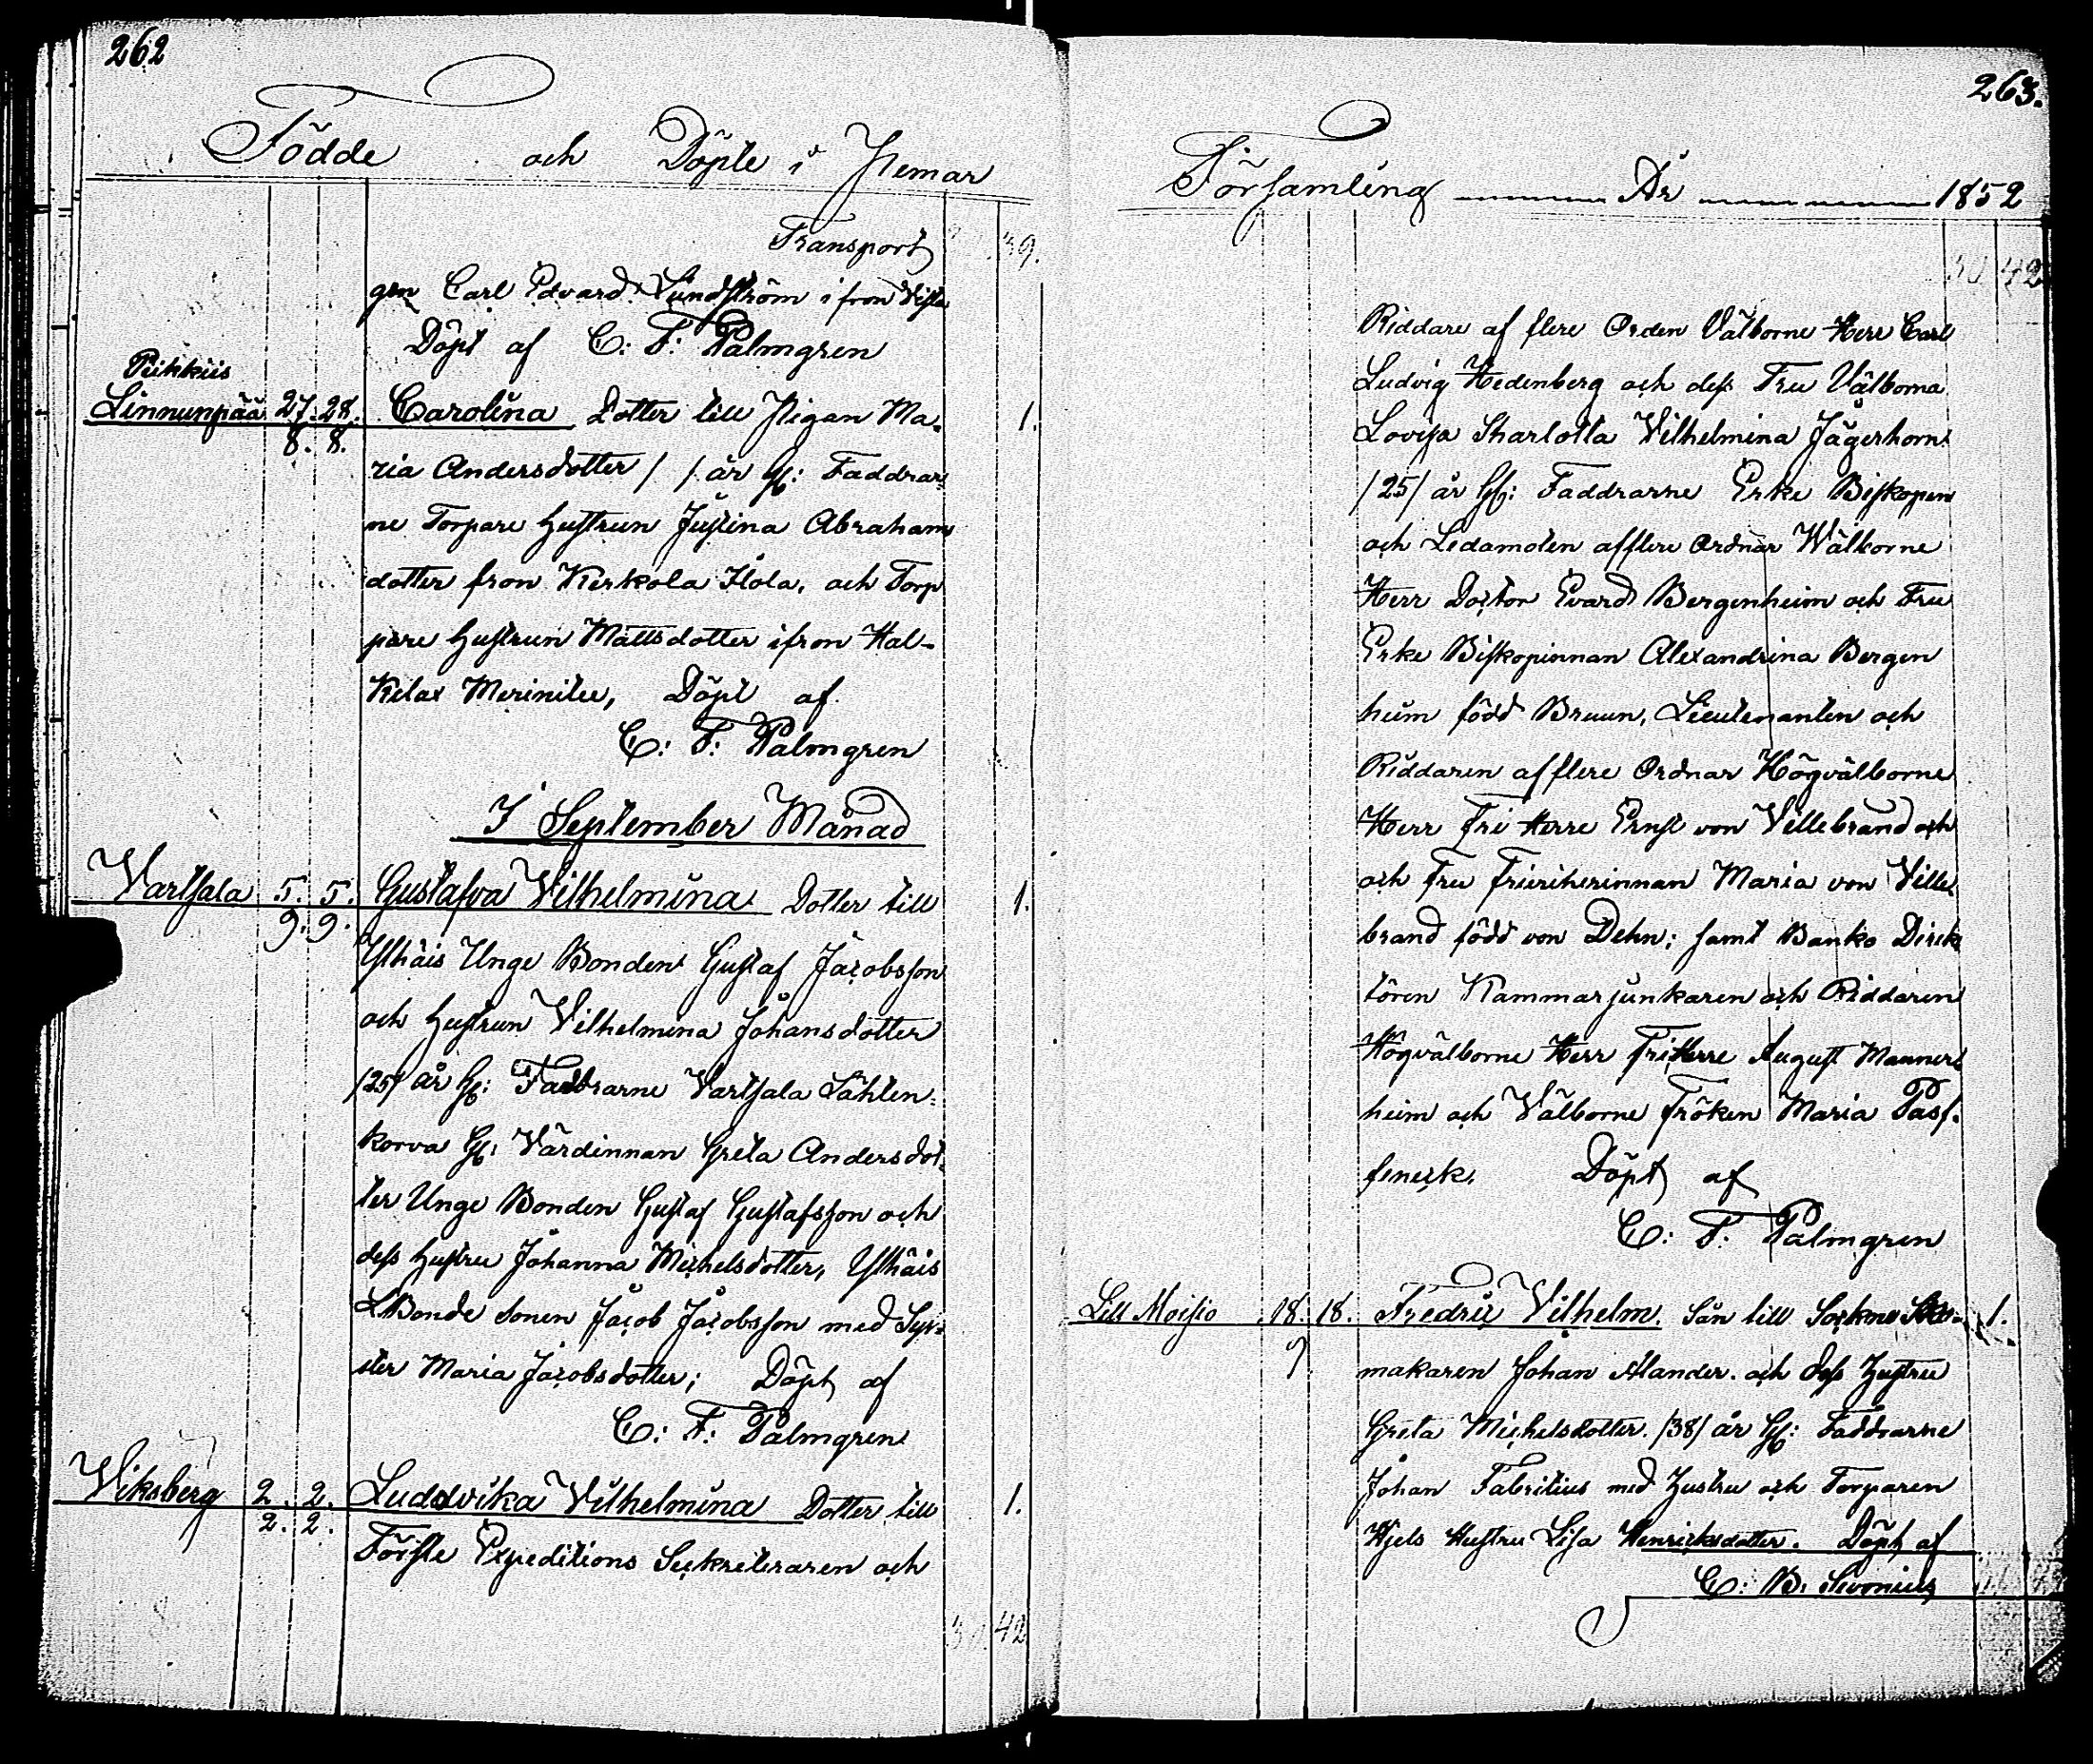 262
Födde och Döpte i Pemar
Transport 39.
gen Carl Edvard Lundström i fron Vista
Döpt af C: F: Palmgren
Peikkiis
Linnunpää 27. 28. Carolina Dotter till Pigan Ma- 1.
8. 8.
ria Andersdotter / / år Gl: Faddrar
ne Torpare Hustrun Justina Abrahams
dotter fron Kirkola Ilola, och Torp
pare Hustrun Mattsdotter ifron Hal-
kilax Merinitu, Döpt af
C: F: Palmgren
I September Månad
Vartsala 5. 5. Gustafva Vilhelmina Dotter till 1.
9. 9.
Ylhäis Unge Bonden Gustaf Jacobsson
och Hustrun Vilhelmina Johansdotter
/25/ år Gl: Faddrarne Vartsala Lähten-
korva Gl: Värdinnan Greta Andersdot-
ter Unge Bonden Gustaf Gustafsson och
dess Hustru Johanna Michelsdotter, Ylhäis
L Bonde Sonen Jacob Jacobsson med Sys-
ter Maria Jacobsdotter; Döpt af
C: F: Palmgren
Viksberg 2. 2. Luddvika Vilhelmina Dotter till 1.
2. 2.
Förste Expeditions Seckreteraren och
42
263.
Församling År 1852
42
Riddare af flere Orden Välborne Herr Carl
Ludvig Hedenberg och dess Fru Välborna
Lovisa Sharlotta Vilhelmina Jägerhorn
/25/ år Gl: Faddrarne Erke Biskopen
och Ledamoten afflere Ordnar Wälborne
Herr Doctor Evard Bergenheim och Fru
Erke Biskopinnan Alexandrina Bergen
heim född Bruun, Lieutenanten och
Riddaren afflere Ordnar Högvälborne
Herr Fri Herre Ernst von Villebrand och
och Fru Fririherinnan Maria von Ville
brand född von Dehn; samt Banko Direk
tören Kammarjunkaren och Riddaren
Högvälborne Herr FriHerre August Manner
heim och Välborne Fröken Maria Pas-
senick. Döpt af
C: F: Palmgren
Lill Moisio 18. 18. Fredric Vilhelm. Sån till Sockne Sko- 1.
9.
makaren Johan Alander. och dess Hustru
Greta Michelsdotter. /38/ år Gl: Faddrarne
Johan Fabritius med Hustru och Torparen
Hjels Hustru Lisa Henricksdotter. Döpt af
C: B: Sevonius